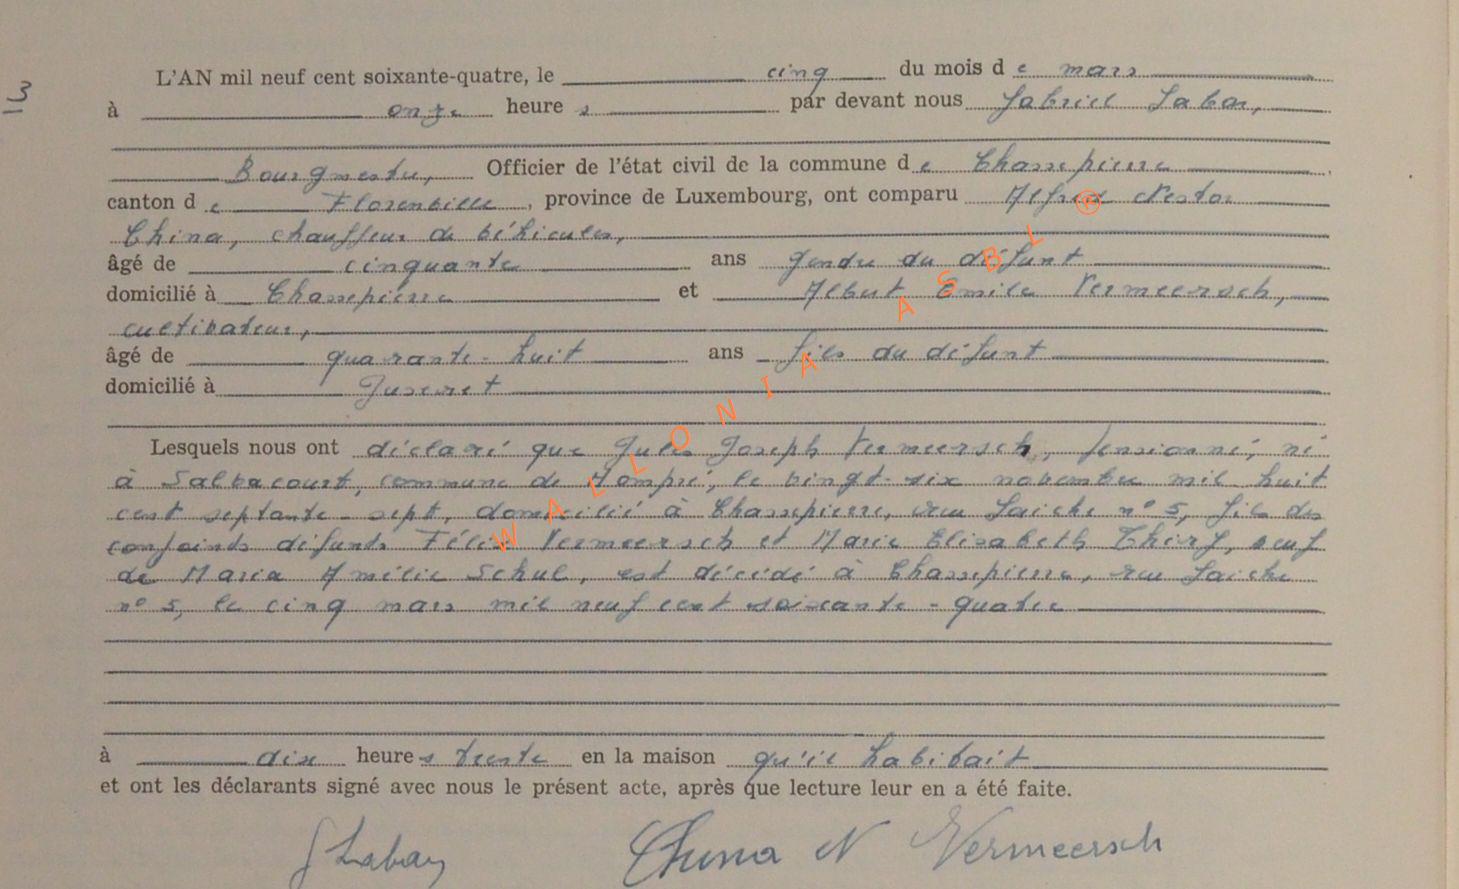 L'AN mil neuf cent soixante-quatre, le cinq du mois de mars
3
à onze heures par devant nous Gabriel Labar,
Bourgmestre, Officier de l'état civil de la commune de Chassepierre
canton de Florenville, province de Luxembourg, ont comparu Alfred Nestor
China, chauffeur de véhicules,
âgé de cinquante ans gendre du défunt
domicilié à Chassepierre et Albert Emile Vermeersch,
cultivateur,
âgé de quarante-huit ans fils du défunt
domicilié à Juseret
Lesquels nous ont déclaré que Jules Joseph Vermeersch, pensionné, né
à Salvacourt, commune de Hompré, le vingt-six novembre mil huit
cent septante-sept, domicilié à Chassepierre, rue Laiche n° 5, fils des
conjoints défunts Félix Vermeersch et Marie Elisabeth Thiry, veuf
de Maria Amélie Schul, est décédé à Chassepierre, rue Laiche
n° 5, le cinq mars mil neuf cent soixante-quatre
à dix heures trente en la maison qu'il habitait
et ont les déclarants signé avec nous le présent acte, après que lecture leur en a été faite.
China N Vermeersch
WALLONIA ASBL ®